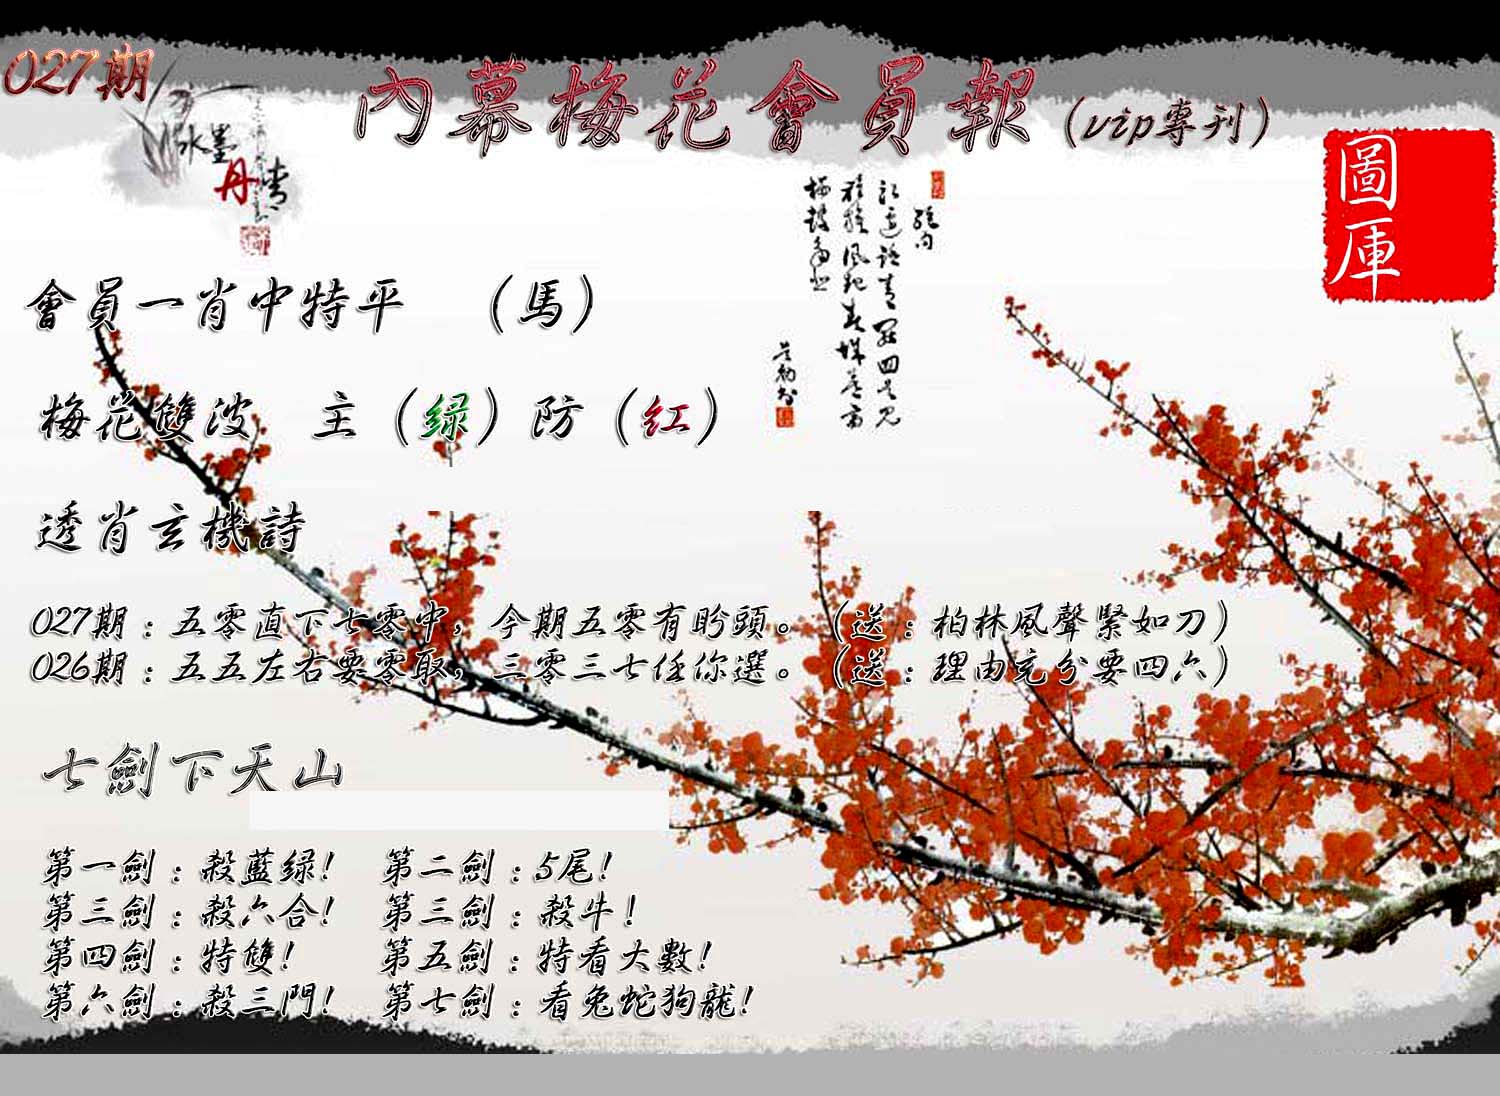 027期
內幕梅花會員報（vip專刊）
水墨
丹青
圖庫
會員一肖中特平 （馬）
梅花雙波 主（绿）防（红）
透肖玄機詩
027期：五零直下七零中，今期五零有盼頭。（送：柏林風聲緊如刀）
026期：五五左右要零取，三零三七任你選。（送：理由充分要四六）
七劍下天山
第一劍：殺藍绿！ 第二劍：5尾！
第三劍：殺六合！ 第三劍：殺牛！
第四劍：特雙！ 第五劍：特看大數！
第六劍：殺三門！ 第七劍：看兔蛇狗龍！